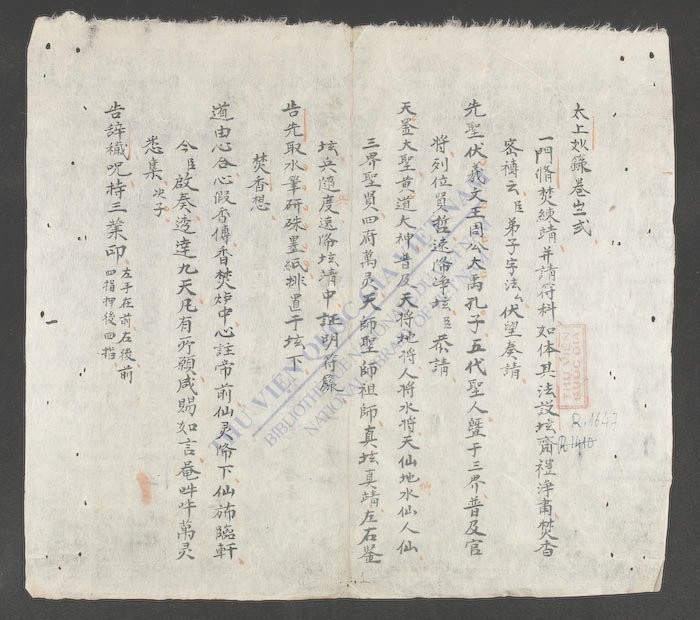 太上妙籙卷之弍
一門脩焚練請并請符科如体具法設坛齋禮淨肅焚香
密禱云臣弟子字法厶伏望奏請
先聖伏羲文王周公大禹孔子五代聖人暨于三界普及官
將列位賢哲速降净坛臣恭請
天星大聖黄道大神普及天將地將人將水將天仙地水仙人仙
三界聖賢四府萬灵天師聖師祖師真坛真靖左右鉴
坛兵隨度速降坛靖中証明符籙
告先取水筆研硃墨紙排置于坛下
焚香想
道由心合心假香傳香焚炉中心註帝前仙灵降下仙旆臨軒
今臣啟奏逹九天凡有所願咸賜如言庵吽吽萬灵
悉集 次子
告辞穢咒持三業印 左手在前右後前
四指押後四指
THƯ VIỆN QUỐC GIA VIỆT NAM
BIBLIOTHÈQUE NATIONALE DU VIETNAM
NATIONAL LIBRARY OF VIETNAM
THƯ VIỆN
QUỐC GIA
R.1647